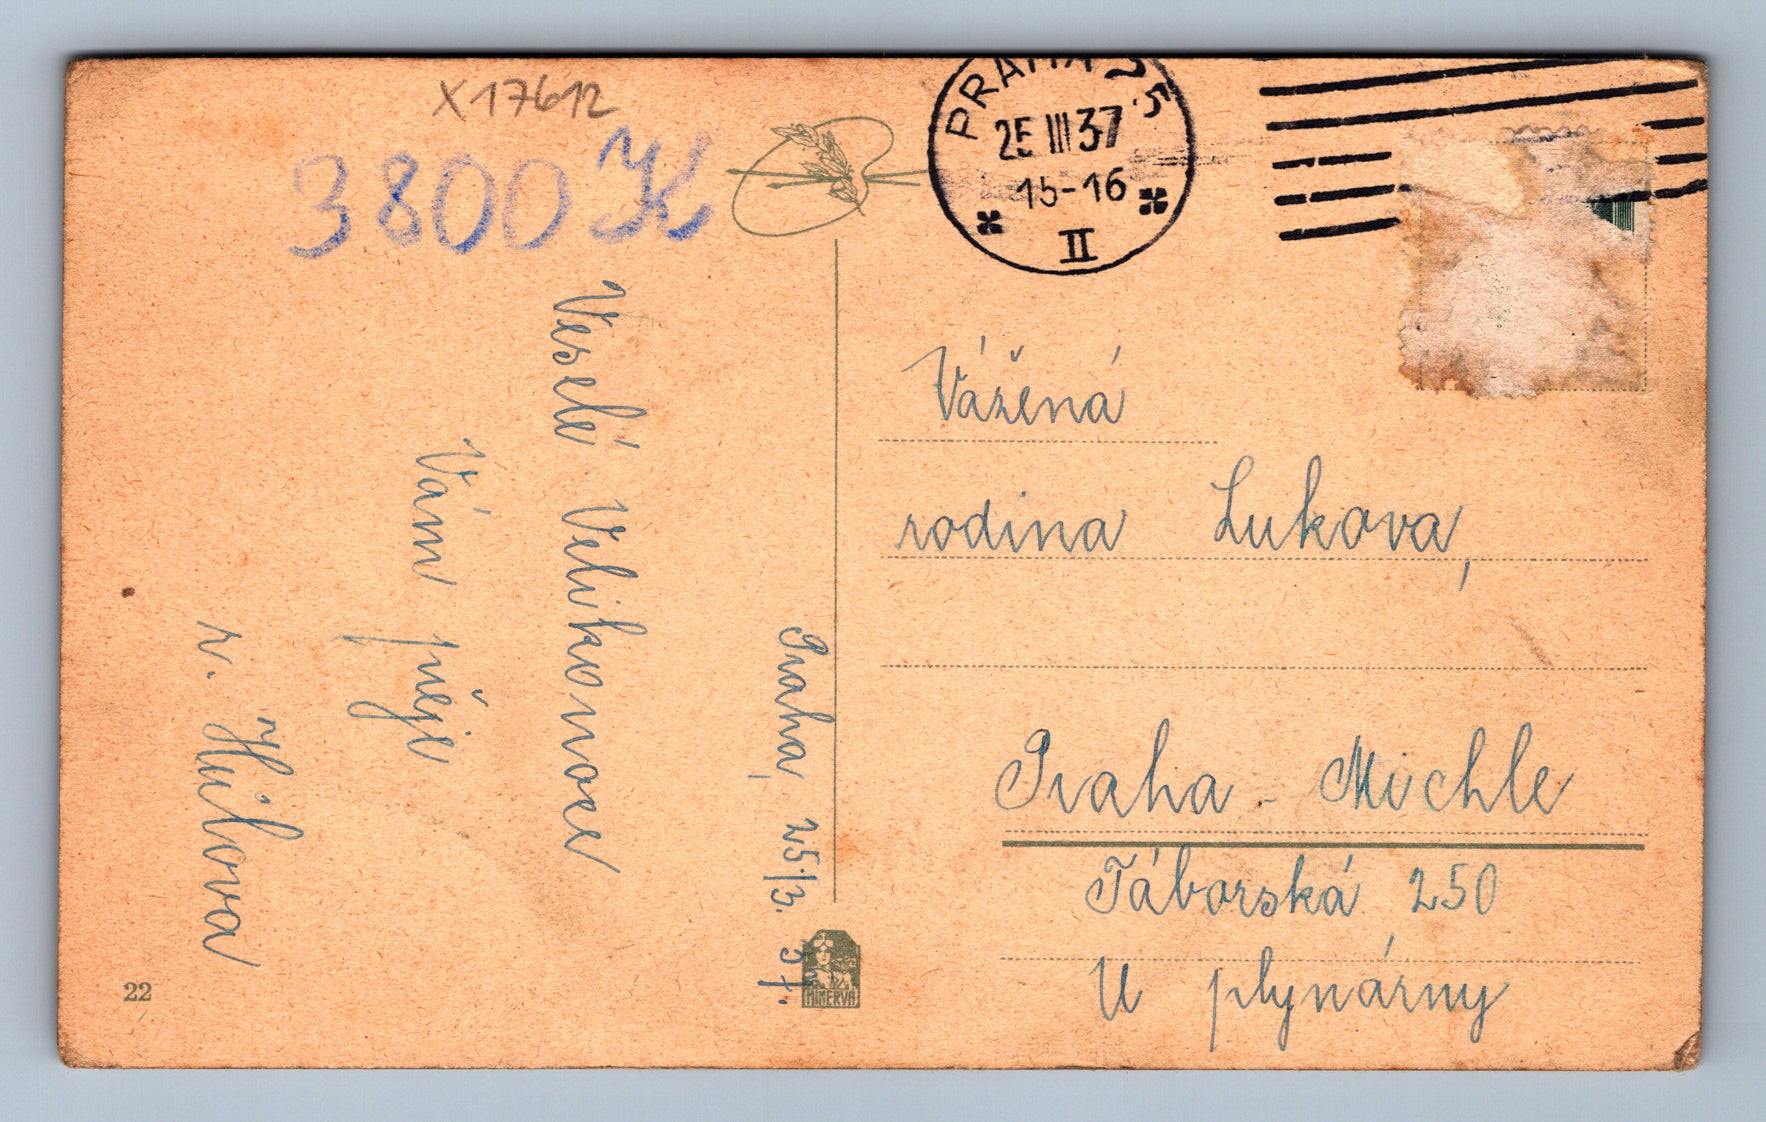 X17612
3800 K
PRAHA 25
25 III 37
15-16
II
Praha, 25/3. 37.
Veselé Velikonoce
Vám přeje
r. Hůlova
Vážená
rodina Lukova,
Praha - Michle
Táborská 250
U plynárny
22
MINERVA